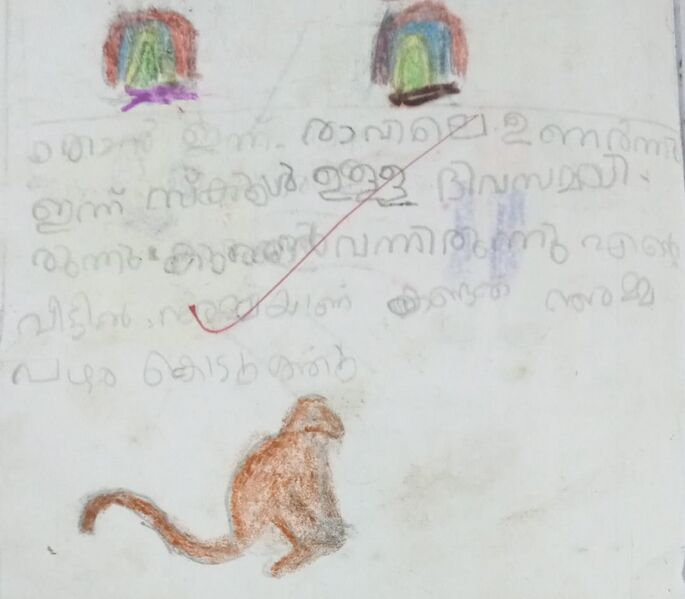 ഞാൻ ഇന്ന് രാവിലെ ഉണർന്നു
ഇന്ന് സ്കൂൾ ഉള്ള ദിവസമായി
രുന്നു കുരങ്ങൻ വന്നിരുന്നു എന്റെ
വീട്ടിൽ അമ്മയാണ് കണ്ടത് അമ്മ
പഴം കൊടുത്തു